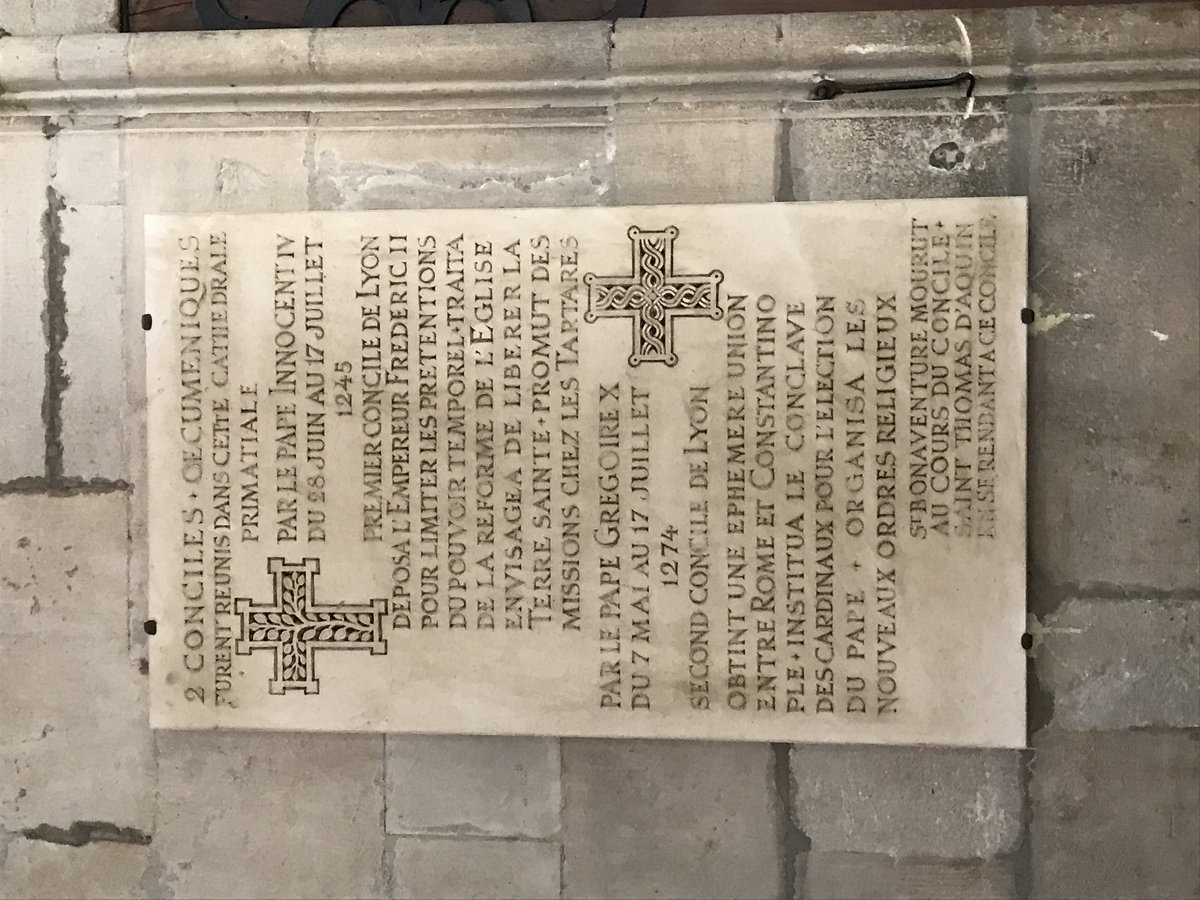 2 CONCILES + OECUMENIQUES
FURENT REUNIS DANS CETTE CATHEDRALE
PRIMATIALE
PAR LE PAPE INNOCENT IV
DU 28 JUIN AU 17 JUILLET
1245
PREMIER CONCILE DE LYON
DEPOSA L'EMPEREUR FREDERIC II
POUR LIMITER LES PRETENTIONS
DU POUVOIR TEMPOREL + TRAITA
DE LA REFORME DE L'EGLISE
ENVISAGEA DE LIBERER LA
TERRE SAINTE + PROMUT DES
MISSIONS CHEZ LES TARTARES
PAR LE PAPE GREGOIRE X
DU 7 MAI AU 17 JUILLET
1274
SECOND CONCILE DE LYON
OBTINT UNE EPHEMERE UNION
ENTRE ROME ET CONSTANTINO
PLE + INSTITUA LE CONCLAVE
DES CARDINAUX POUR L'ELECTION
DU PAPE + ORGANISA LES
NOUVEAUX ORDRES RELIGIEUX
ST BONAVENTURE MOURUT
AU COURS DU CONCILE +
SAINT THOMAS D'AQUIN
EN SE RENDANT A CE CONCILE